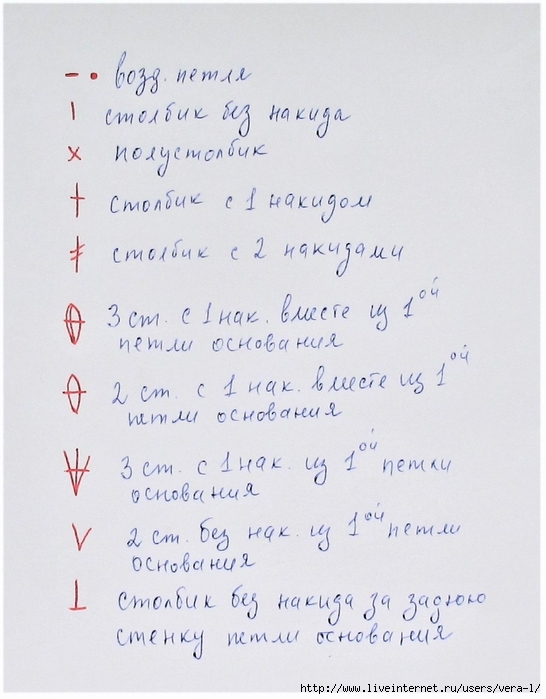 – • возд. петля
| столбик без накида
x полустолбик
† столбик с 1 накидом
ǂ столбик с 2 накидами
3 ст. с 1 нак. вместе из 1ой
петли основания
2 ст. с 1 нак. вместе из 1ой
петли основания
3 ст. с 1 нак. из 1ой петли
основания
V 2 ст. без нак. из 1ой петли
основания
⊥ столбик без накида за заднюю
стенку петли основания
http://www.liveinternet.ru/users/vera-l/